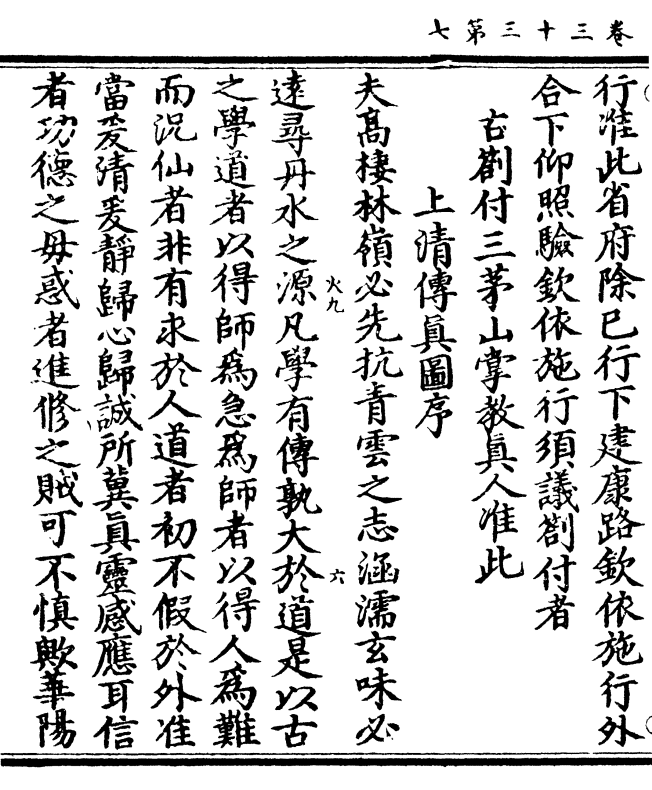 卷三十三第七
行准此省府除已行下建康路欽依施行外
合下仰照驗欽依施行須議劄付者
右劄付三茅山掌教真人准此
上清傳真圖序
夫髙棲林嶺必先抗青雲之志涵濡玄味必
逹尋丹水之源凡學有傳孰大於道是以古
之學道者以得師為急為師者以得人為難
而況仙者非有求於人道者初不假於外准
當爰清爰靜歸心歸誠所冀真靈感應耳信
者功德之毋惑者進修之賊可不慎歟華陽
火九
六